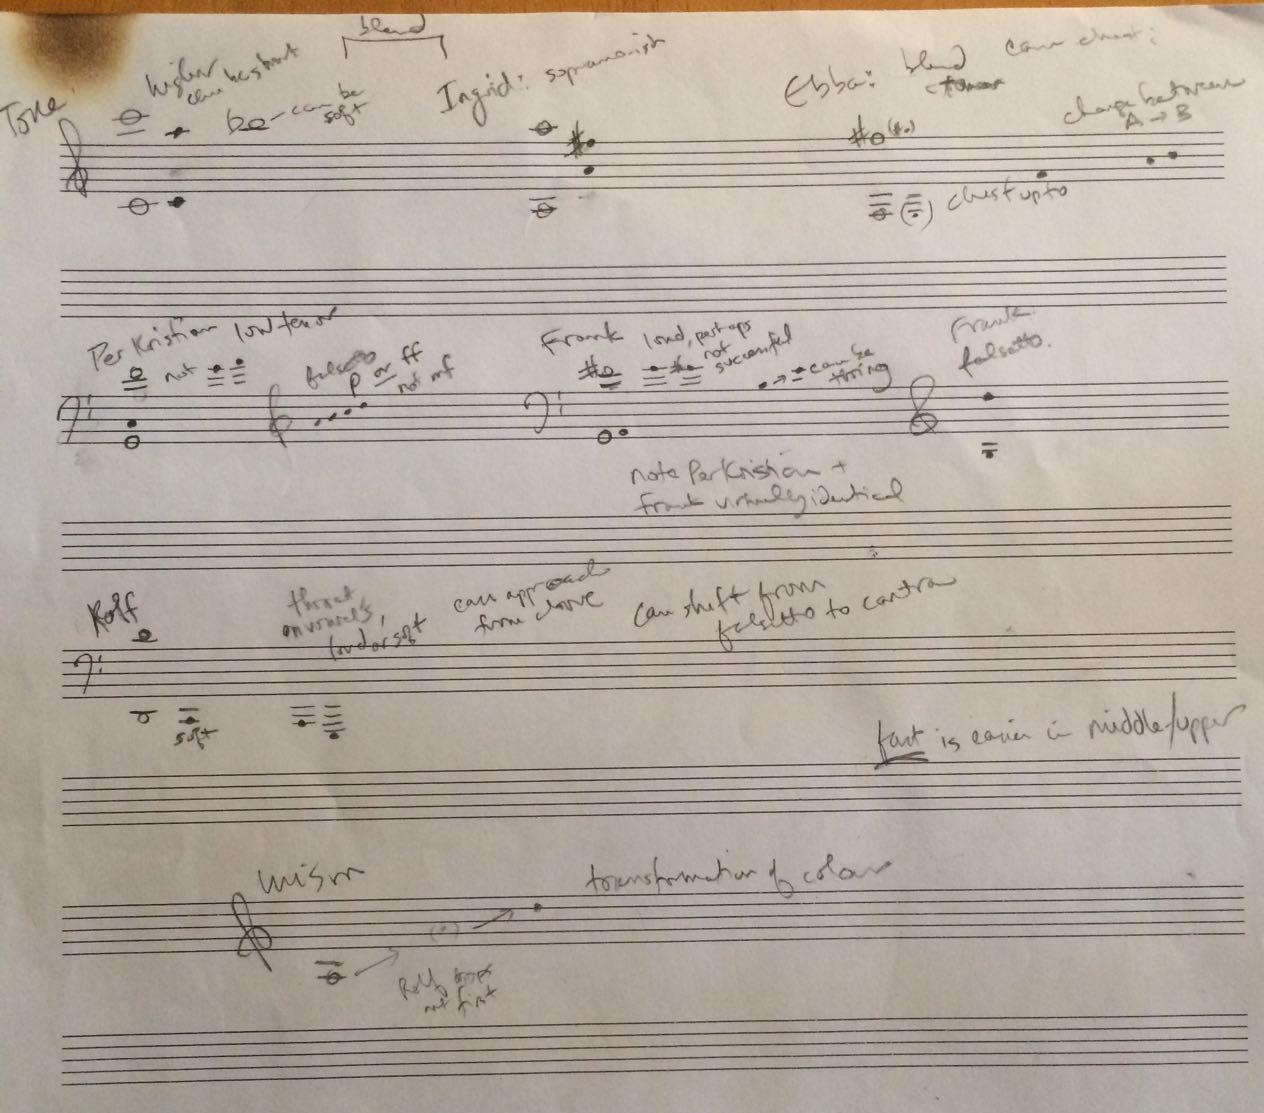 blend
Tone
higher
can be short
can be
soft
Ingrid: sopranoish
Ebba: blend can chest:
change between
A → B
chest up to
Per Kristian low tenor
not
falsetto
p or ff
not mf
Frank loud, perhaps
not
successful
can be
thring
Frank
falsetto.
note Per Kristian +
Frank virtually identical
Rolf
throat
on vowels,
loud or soft
can approach
from above
can shift from
falsetto to contra
soft
fast is easier in middle/upper
unison
transformation of colour
Rolf drops
out first